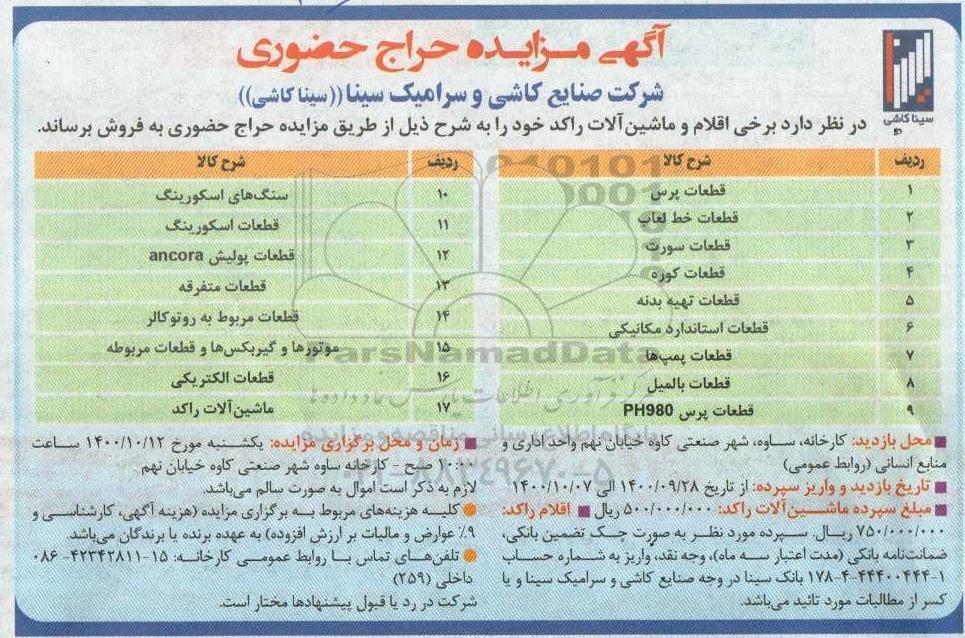 آگهی مزایده حراج حضوری
شرکت صنایع کاشی و سرامیک سینا ((سینا کاشی))
سینا کاشی
در نظر دارد برخی اقلام و ماشین‌آلات راکد خود را به شرح ذیل از طریق مزایده حراج حضوری به فروش برساند.
ردیف شرح کالا
۱ قطعات پرس
۲ قطعات خط لعاب
۳ قطعات سورت
۴ قطعات کوره
۵ قطعات تهیه بدنه
۶ قطعات استاندارد مکانیکی
۷ قطعات پمپ‌ها
۸ قطعات بالمیل
۹ قطعات پرس PH980
ردیف شرح کالا
۱۰ سنگ‌های اسکورینگ
۱۱ قطعات اسکورینگ
۱۲ قطعات پولیش ancora
۱۳ قطعات متفرقه
۱۴ قطعات مربوط به روتوکالر
۱۵ موتورها و گیربکس‌ها و قطعات مربوطه
۱۶ قطعات الکتریکی
۱۷ ماشین‌آلات راکد
محل بازدید: کارخانه، ساوه، شهر صنعتی کاوه خیابان نهم واحد اداری و
منابع انسانی (روابط عمومی)
تاریخ بازدید و واریز سپرده: از تاریخ ۱۴۰۰/۰۹/۲۸ الی ۱۴۰۰/۱۰/۰۷
مبلغ سپرده ماشین‌آلات راکد: ۵۰۰/۰۰۰/۰۰۰ ریال اقلام راکد:
۷۵۰/۰۰۰/۰۰۰ ریال. سپرده مورد نظر به صورت چک تضمین بانکی،
ضمانت‌نامه بانکی (مدت اعتبار سه ماه)، وجه نقد، واریز به شماره حساب
۱۷۸-۴-۴۴۴۰۰۴۴۴-۱ بانک سینا در وجه صنایع کاشی و سرامیک سینا و یا
کسر از مطالبات مورد تائید می‌باشد.
زمان و محل برگزاری مزایده: یکشنبه مورخ ۱۴۰۰/۱۰/۱۲ ساعت
۱۰:۰۰ صبح - کارخانه ساوه شهر صنعتی کاوه خیابان نهم
لازم به ذکر است اموال به صورت سالم می‌باشد.
کلیه هزینه‌های مربوط به برگزاری مزایده (هزینه آگهی، کارشناسی و
۹٪ عوارض و مالیات بر ارزش افزوده) به عهده برنده یا برندگان می‌باشد.
تلفن‌های تماس با روابط عمومی کارخانه: ۱۵-۴۲۳۴۲۸۱۱-۰۸۶
داخلی (۲۵۹)
شرکت در رد یا قبول پیشنهادها مختار است.
ParsNamadData